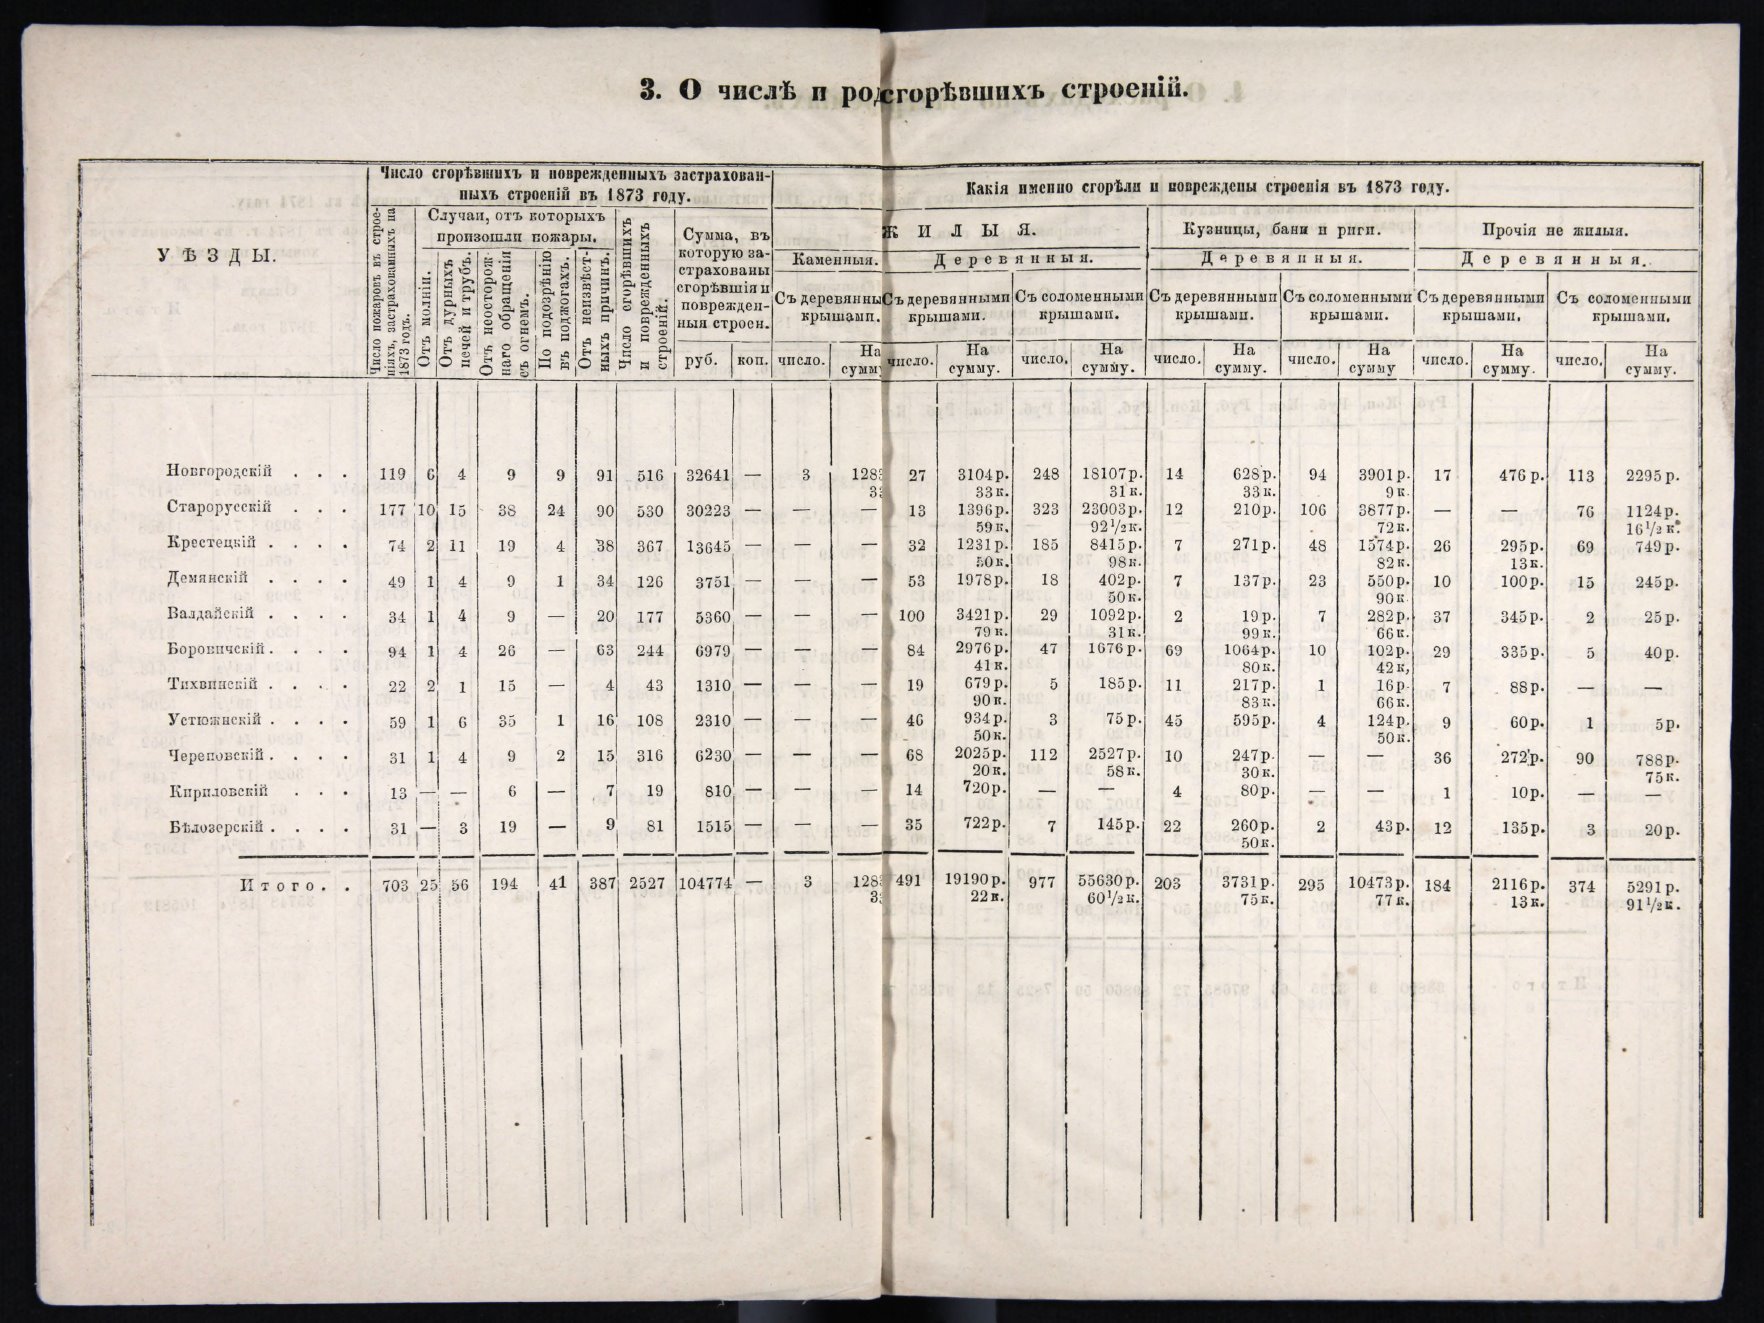 3. О числѣ и род сгорѣвшихъ строеній.
УѢЗДЫ.
Число сгорѣвшихъ и поврежденныхъ застрахован-
ныхъ строеній въ 1873 году.
Какія именно сгорѣли и повреждены строенія въ 1873 году.
Число пожаровъ въ строе-
ніяхъ, застрахованныхъ на
1873 годъ.
Случаи, отъ которыхъ
произошли пожары.
Отъ молніи.
Отъ дурныхъ
печей и трубъ.
Отъ неосторож-
наго обращенія
съ огнемъ.
По подозрѣнію
въ поджогахъ.
Отъ неизвѣст-
ныхъ причинъ.
Число сгорѣвшихъ
и поврежденныхъ
строеній.
Сумма, въ
которую за-
страхованы
сгорѣвшія и
поврежден-
ныя строен.
руб. коп.
ЖИЛЫЯ.
Каменныя.
Деревянныя.
Кузницы, бани и риги.
Деревянныя.
Прочія не жилыя.
Деревянныя.
Съ деревянны
крышами.
Съ деревянными
крышами.
Съ соломенными
крышами.
Съ деревянными
крышами.
Съ соломенными
крышами.
Съ деревянными
крышами.
Съ соломенными
крышами.
число. На сумм
число. На сумму.
число. На сумму.
число. На сумму.
число. На сумму
число. На сумму.
число. На сумму.
Новгородскій . . . 119 6 4 9 9 91 516 32641 — 3 1283 27 3104р. 248 18107р. 14 628р. 94 3901р. 17 476р. 113 2295р.
33 33к. 31к. 33к. 9к.
Старорусскій . . . 177 10 15 38 24 90 530 30223 — — — 13 1396р. 323 23003р. 12 210р. 106 3877р. — — 76 1124р.
59к. 92½к. 72к. 16½к.
Крестецкій . . . . 74 2 11 19 4 38 367 13645 — — — 32 1231р. 185 8415р. 7 271р. 48 1574р. 26 295р. 69 749р.
50к. 98к. 82к. 13к.
Демянскій . . . . 49 1 4 9 1 34 126 3751 — — — 53 1978р. 18 402р. 7 137р. 23 550р. 10 100р. 15 245р.
50к. 90к.
Валдайскій . . . . 34 1 4 9 — 20 177 5360 — — — 100 3421р. 29 1092р. 2 19р. 7 282р. 37 345р. 2 25р.
79к. 31к. 99к. 66к.
Боровичскій . . . . 94 1 4 26 — 63 244 6979 — — — 84 2976р. 47 1676р. 69 1064р. 10 102р. 29 335р. 5 40р.
41к. 80к. 42к.
Тихвинскій . . . . 22 2 1 15 — 4 43 1310 — — — 19 679р. 5 185р. 11 217р. 1 16р. 7 88р. — —
90к. 83к. 66к.
Устюжнскій . . . . 59 1 6 35 1 16 108 2310 — — — 46 934р. 3 75р. 45 595р. 4 124р. 9 60р. 1 5р.
50к. 50к.
Череповскій . . . . 31 1 4 9 2 15 316 6230 — — — 68 2025р. 112 2527р. 10 247р. — — 36 272р. 90 788р.
20к. 58к. 30к. 75к.
Кириловскій . . . 13 — — 6 — 7 19 810 — — — 14 720р. — — 4 80р. — — 1 10р. — —
Бѣлозерскій . . . . 31 — 3 19 — 9 81 1515 — — — 35 722р. 7 145р. 22 260р. 2 43р. 12 135р. 3 20р.
50к.
Итого . . 703 25 56 194 41 387 2527 104774 — 3 1283 491 19190р. 977 55630р. 203 3731р. 295 10473р. 184 2116р. 374 5291р.
33 22к. 60½к. 75к. 77к. 13к. 91½к.